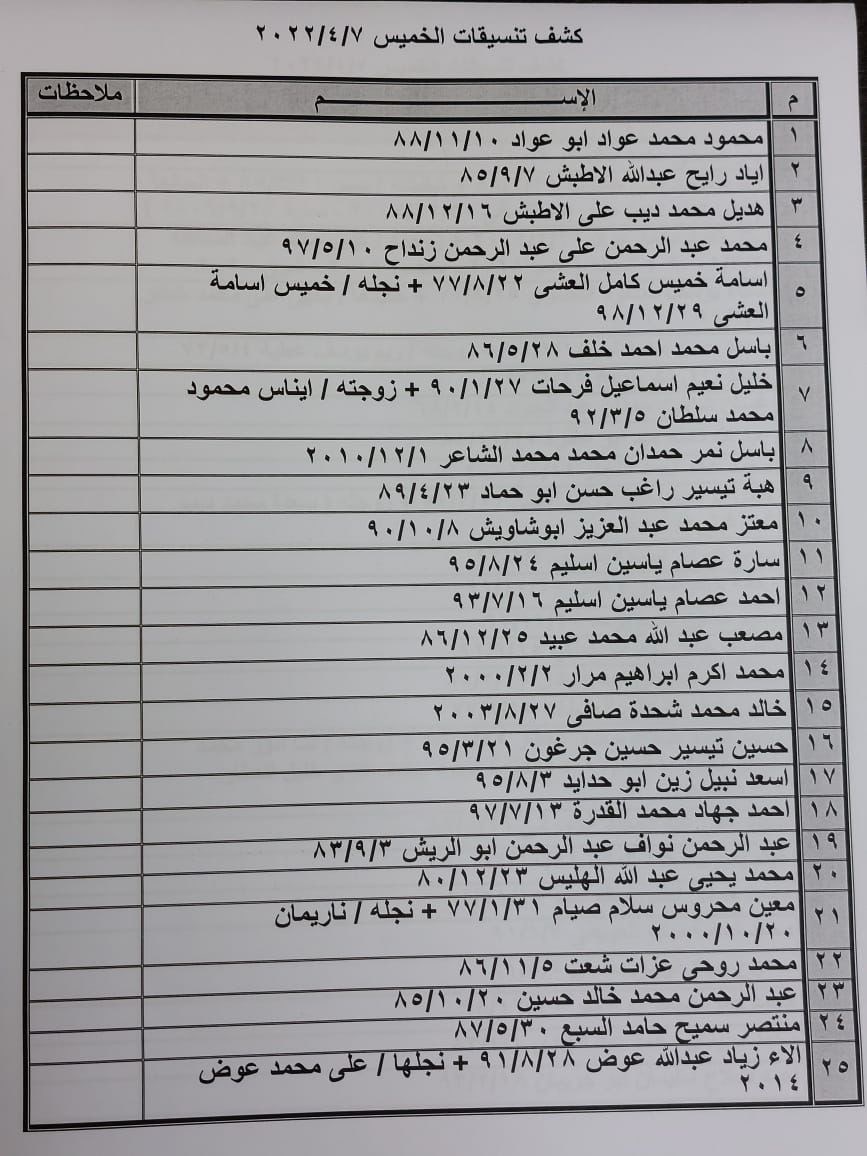 كشف تنسيقات الخميس ٢٠٢٢/٤/٧
م الإســـــــــم ملاحظات
١ محمود محمد عواد ابو عواد ٨٨/١١/١٠
٢ اياد رايح عبدالله الاطبش ٨٥/٩/٧
٣ هديل محمد ديب على الاطبش ٨٨/١٢/١٦
٤ محمد عبد الرحمن على عبد الرحمن زنداح ٩٧/٥/١٠
٥ اسامة خميس كامل العشى ٧٧/٨/٢٢ + نجله / خميس اسامة
العشى ٩٨/١٢/٢٩
٦ باسل محمد احمد خلف ٨٦/٥/٢٨
٧ خليل نعيم اسماعيل فرحات ٩٠/١/٢٧ + زوجته / ايناس محمود
محمد سلطان ٩٢/٣/٥
٨ باسل نمر حمدان محمد محمد الشاعر ٢٠١٠/١٢/١
٩ هبة تيسير راغب حسن ابو حماد ٨٩/٤/٢٣
١٠ معتز محمد عبد العزيز ابوشاويش ٩٠/١٠/٨
١١ سارة عصام ياسين اسليم ٩٥/٨/٢٤
١٢ احمد عصام ياسين اسليم ٩٣/٧/١٦
١٣ مصعب عبد الله محمد عبيد ٨٦/١٢/٢٥
١٤ محمد اكرم ابراهيم مرار ٢٠٠٠/٢/٢
١٥ خالد محمد شحدة صافى ٢٠٠٣/٨/٢٧
١٦ حسين تيسير حسين جرغون ٩٥/٣/٢١
١٧ اسعد نبيل زين ابو حدايد ٩٥/٨/٣
١٨ احمد جهاد محمد القدرة ٩٧/٧/١٣
١٩ عبد الرحمن نواف عبد الرحمن ابو الريش ٨٣/٩/٣
٢٠ محمد يحيى عبد الله الهليس ٨٠/١٢/٢٣
٢١ معين محروس سلام صيام ٧٧/١/٣١ + نجله / ناريمان
٢٠٠٠/١٠/٢٠
٢٢ محمد روحى عزات شعت ٨٦/١١/٥
٢٣ عبد الرحمن محمد خالد حسين ٨٥/١٠/٢٠
٢٤ منتصر سميح حامد السبع ٨٧/٥/٣٠
٢٥ الاء زياد عبدالله عوض ٩١/٨/٢٨ + نجلها / على محمد عوض
٢٠١٤